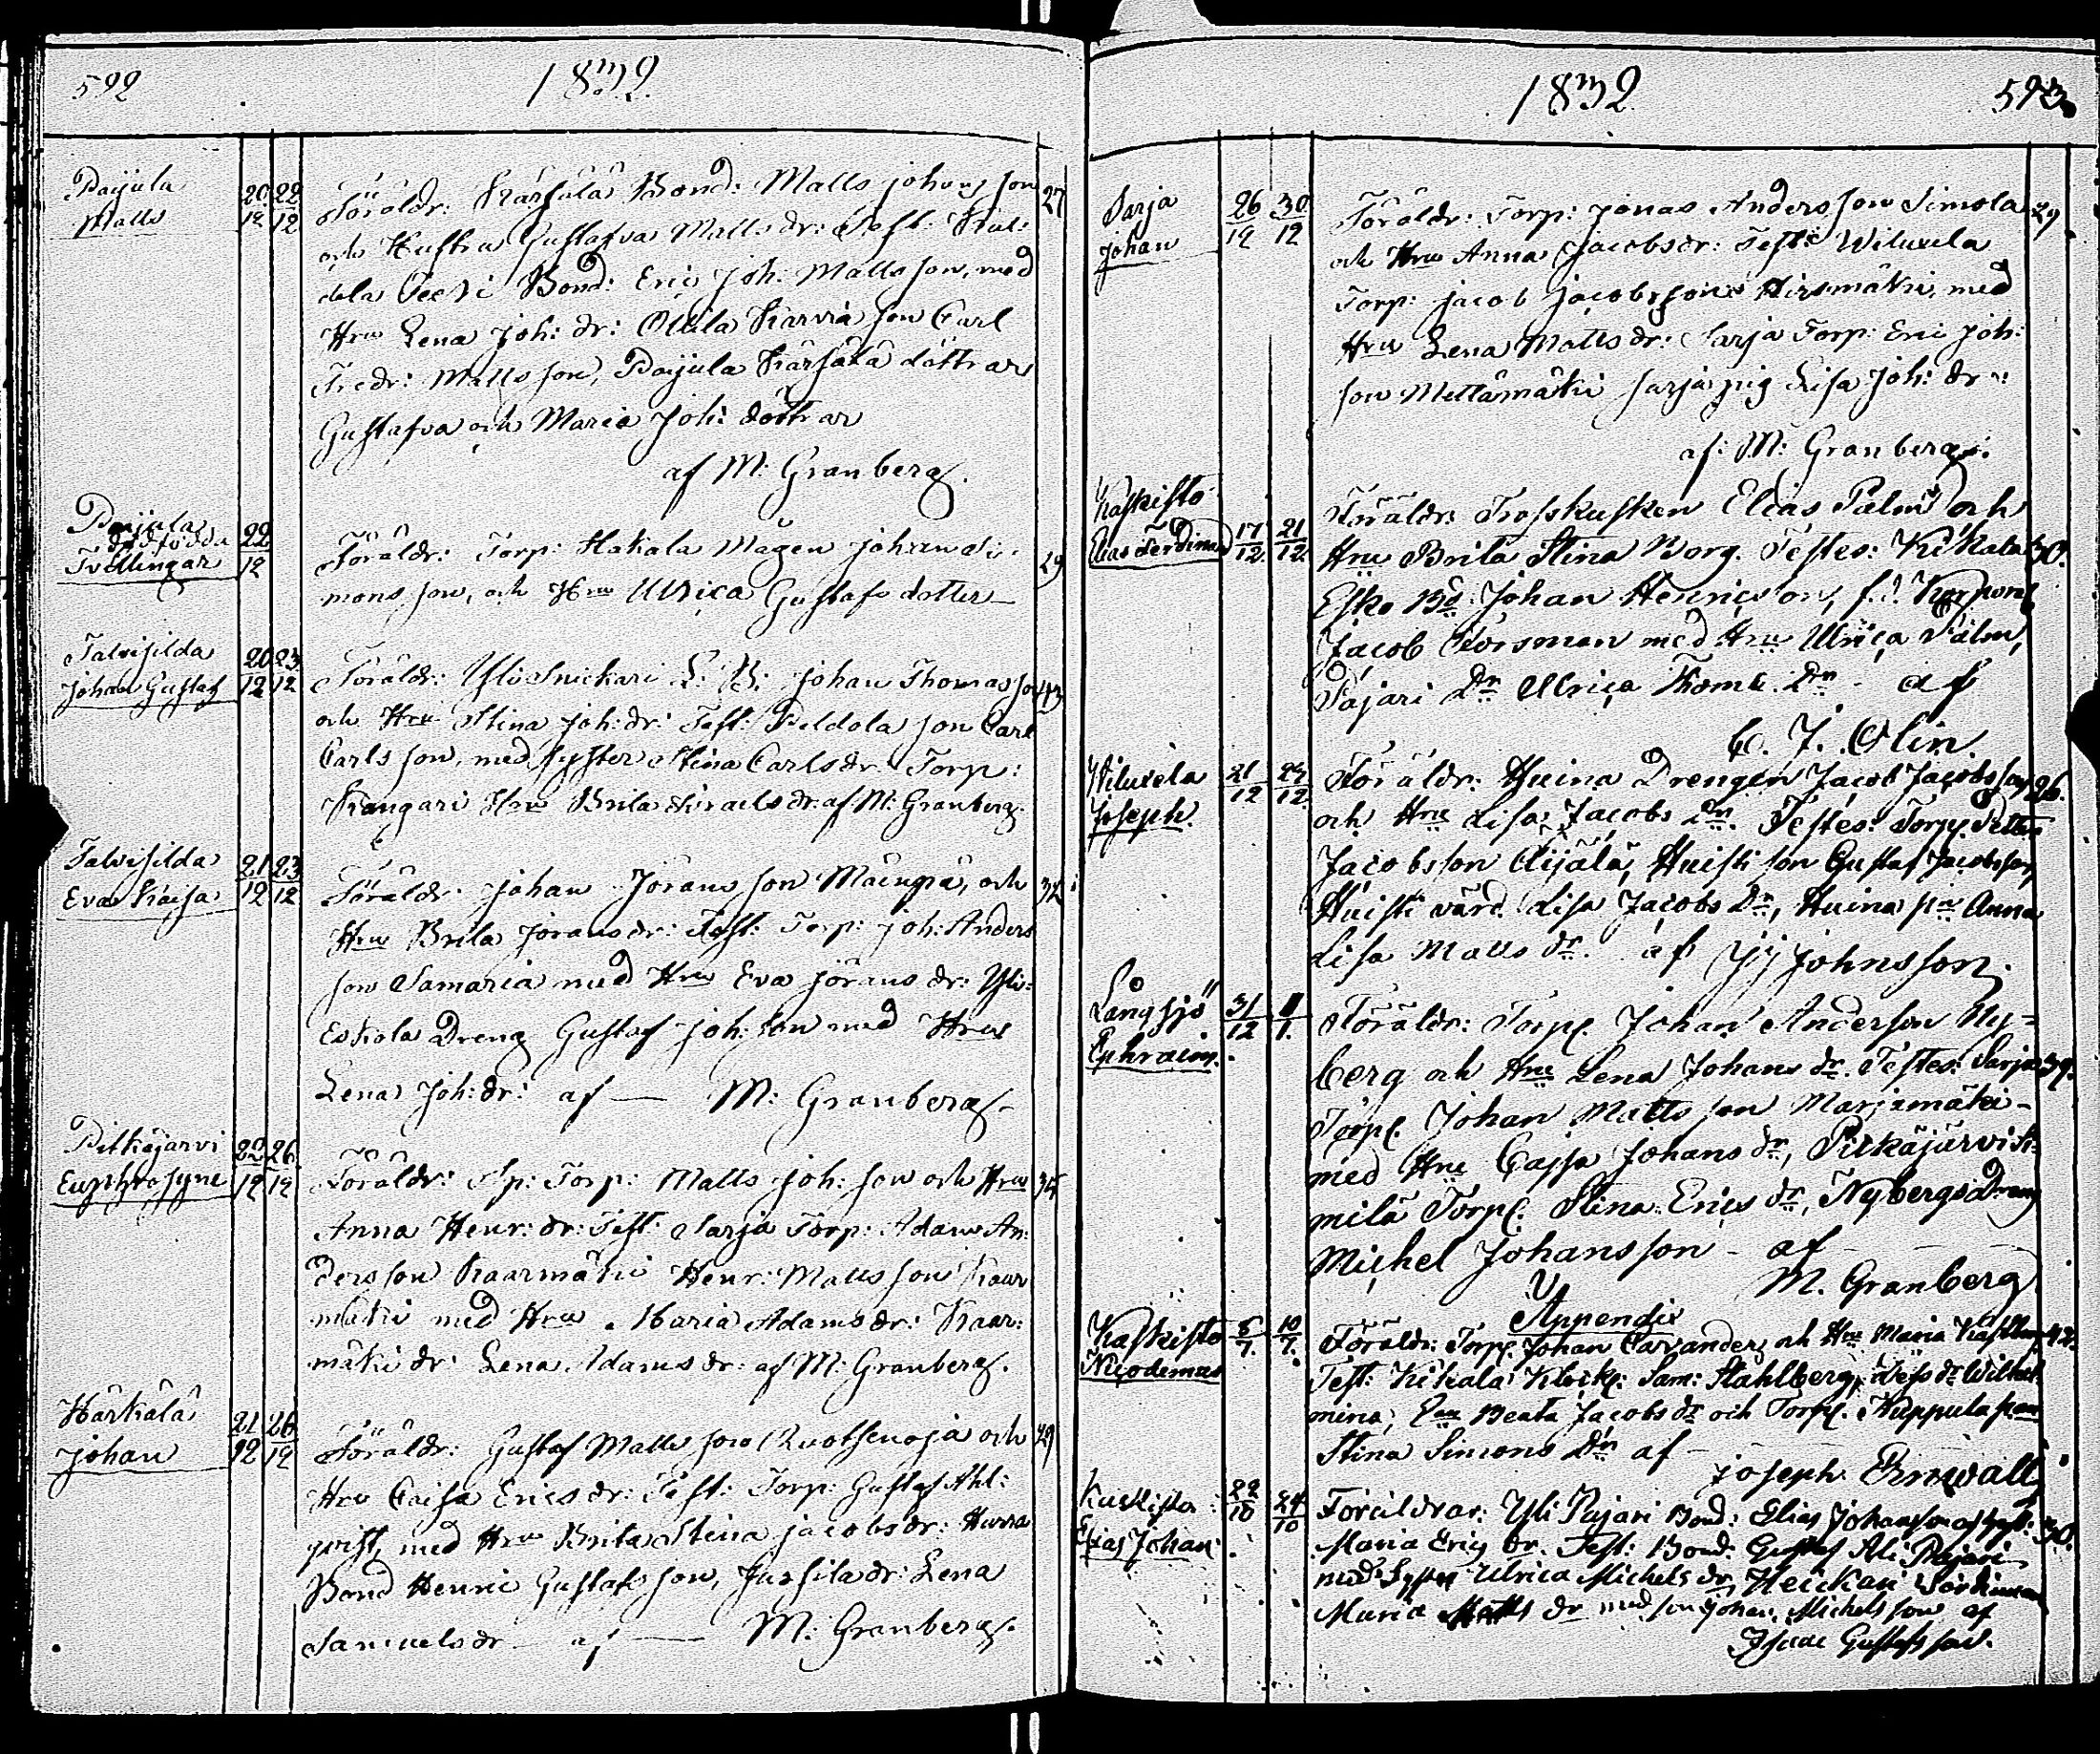 592
1832.
Paijula
Matts
20/12 22/12
Föräldr: Kärsälä Bond: Matts Johans son 27
och Hustru Gustafva Matts dr: Test:
dela Peeri Bond: Eric Joh: Matts son, med
Hru Lena Joh: dr: Ollila Karvia son Carl
Fredr: Matts son, Paijula Kärsälä döttrar
Gustafva och Maria Joh: döttrar
af M: Granberg.
Paijula
dödfödda
Tvillingar
22/12
Föräldr: Torp: Hakala Mågen Johan Si- 29
mons son, och Hru Ulrica Gustafs dotter
Talvisilda
Johan Gustaf
20/12 23/12
Föräldr: Ylisnickari Johan Thomas son 43
och Hru Stina Joh: dr: Test: Peldola son Carl
Carls son, med syster Stina Carls dr: Torp:
Kangari Hru Brita Israels dr: af M: Granberg.
Talvisilda
Eva Caisa
21/12 23/12
Föräldr: Johan Jörans son Mäenpä, och 32
Hru Brita Jörans dr: Test: Torp: Joh: Anders
son Samaria med Hru Eva Jörans dr: Yli-
Eskola Dreng Gustaf Joh: son med Hru
Lena Joh: dr: af — M: Granberg.
Pitkäjärvi
Euphrosyne
22/12 26/12
Föräldr: Sp: Torp: Matts Joh: son och Hru 34
Anna Henr: dr: Test: Sarja Torp: Adam An-
ders son Kaarmäki Henr: Matts son Kaar
mäki med Hru Maria Adams dr: Kaar:
mäki dr: Lena Adams dr: af M: Granberg.
Härkälä
Johan
21/12 26/12
Föräldr: Gustaf Matts son Ruotsenoja och 29
Hru Caisa Erics dr: Test: Torp: Gustaf Ahl:
qvist, med Hru Brita Stina Jacobs dr: Hurra
Bond Henric Gustafs son, Jussila dr: Lena
Samuels dr — af — M: Granberg.
1832
593.
Sarja
Johan
26/12 30/12
Föräldr: Torp: Jonas Anders son Simola 29
och Hru Anna Jacobs dr: Test: Wiluxela
Torp: Jacob Jacobs son Hirsmäki, med
Hru Lena Matts dr: Sarja Torp: Eric Joh:
son Mettämäki Sarja pig Lisa Joh: dr:
af: M: Granberg.
Kaskisto
Elias Ferdinand
17/12. 21/12.
Föräldr: Trosskusken Elias Palm och
Hru Brita Stina Borg. Testes: Kikala 30.
Esko Bd: Johan Henricson, f.d. Korporal
Jacob Forsman med Hru Ulrica Palm,
Pajari Dr Ulrica Thom: Dr — af
C. J. Olin.
Wiluxela
Joseph.
21/12 24/12.
Föräldr: Huina Drengen Jacob Jacobsson 26.
och Hru Lisa Jacobs Dr. Testes: Torp. Petter
Jacobsson Äijälä, Huisti son Gustaf Jacobsson,
Huisti värd. Lisa Jacobs Dr, Huina pa Anna
Lisa Matts dr. af JJ Johnsson.
Långsjö
Ephraim.
31/12 1/1.
Föräldr: Torp. Johan Anderson Ny=
berg och Hru Lena Johans dr. Testes: Sarja 39.
Torp. Johan Matts son Marjamäki
med Hru Cajsa Johans dr, Pitkäjärvi
milä Torp. Stina Erics dr, Nybergs Dräng
Michel Johansson — af —
M. Granberg
Appendix
Kaskisto
Nicodemus
6/7. 10/7.
Föräldr: Torp. Johan Cavander och Hru Maria 42.
Test: Kikala Klock: Sam: Stahlberg, dess dr Wilhel
mina, Beata Jacobs dr och Torp. Kuppula
Stina Simons Dr af —
Joseph Ernwall
Kaskisto
Elias Johan
22/10 24/10
Föräldrar: Yli Pajari Bond: Elias Johansson och Hust: 30.
Maria Erics dr. Test: Bond: Gustaf Ali Pajari
med Syster Ulrica Michels dr, Heickari
Maria Matts dr med son Johan Michels son af
Isaac Gustafsson.